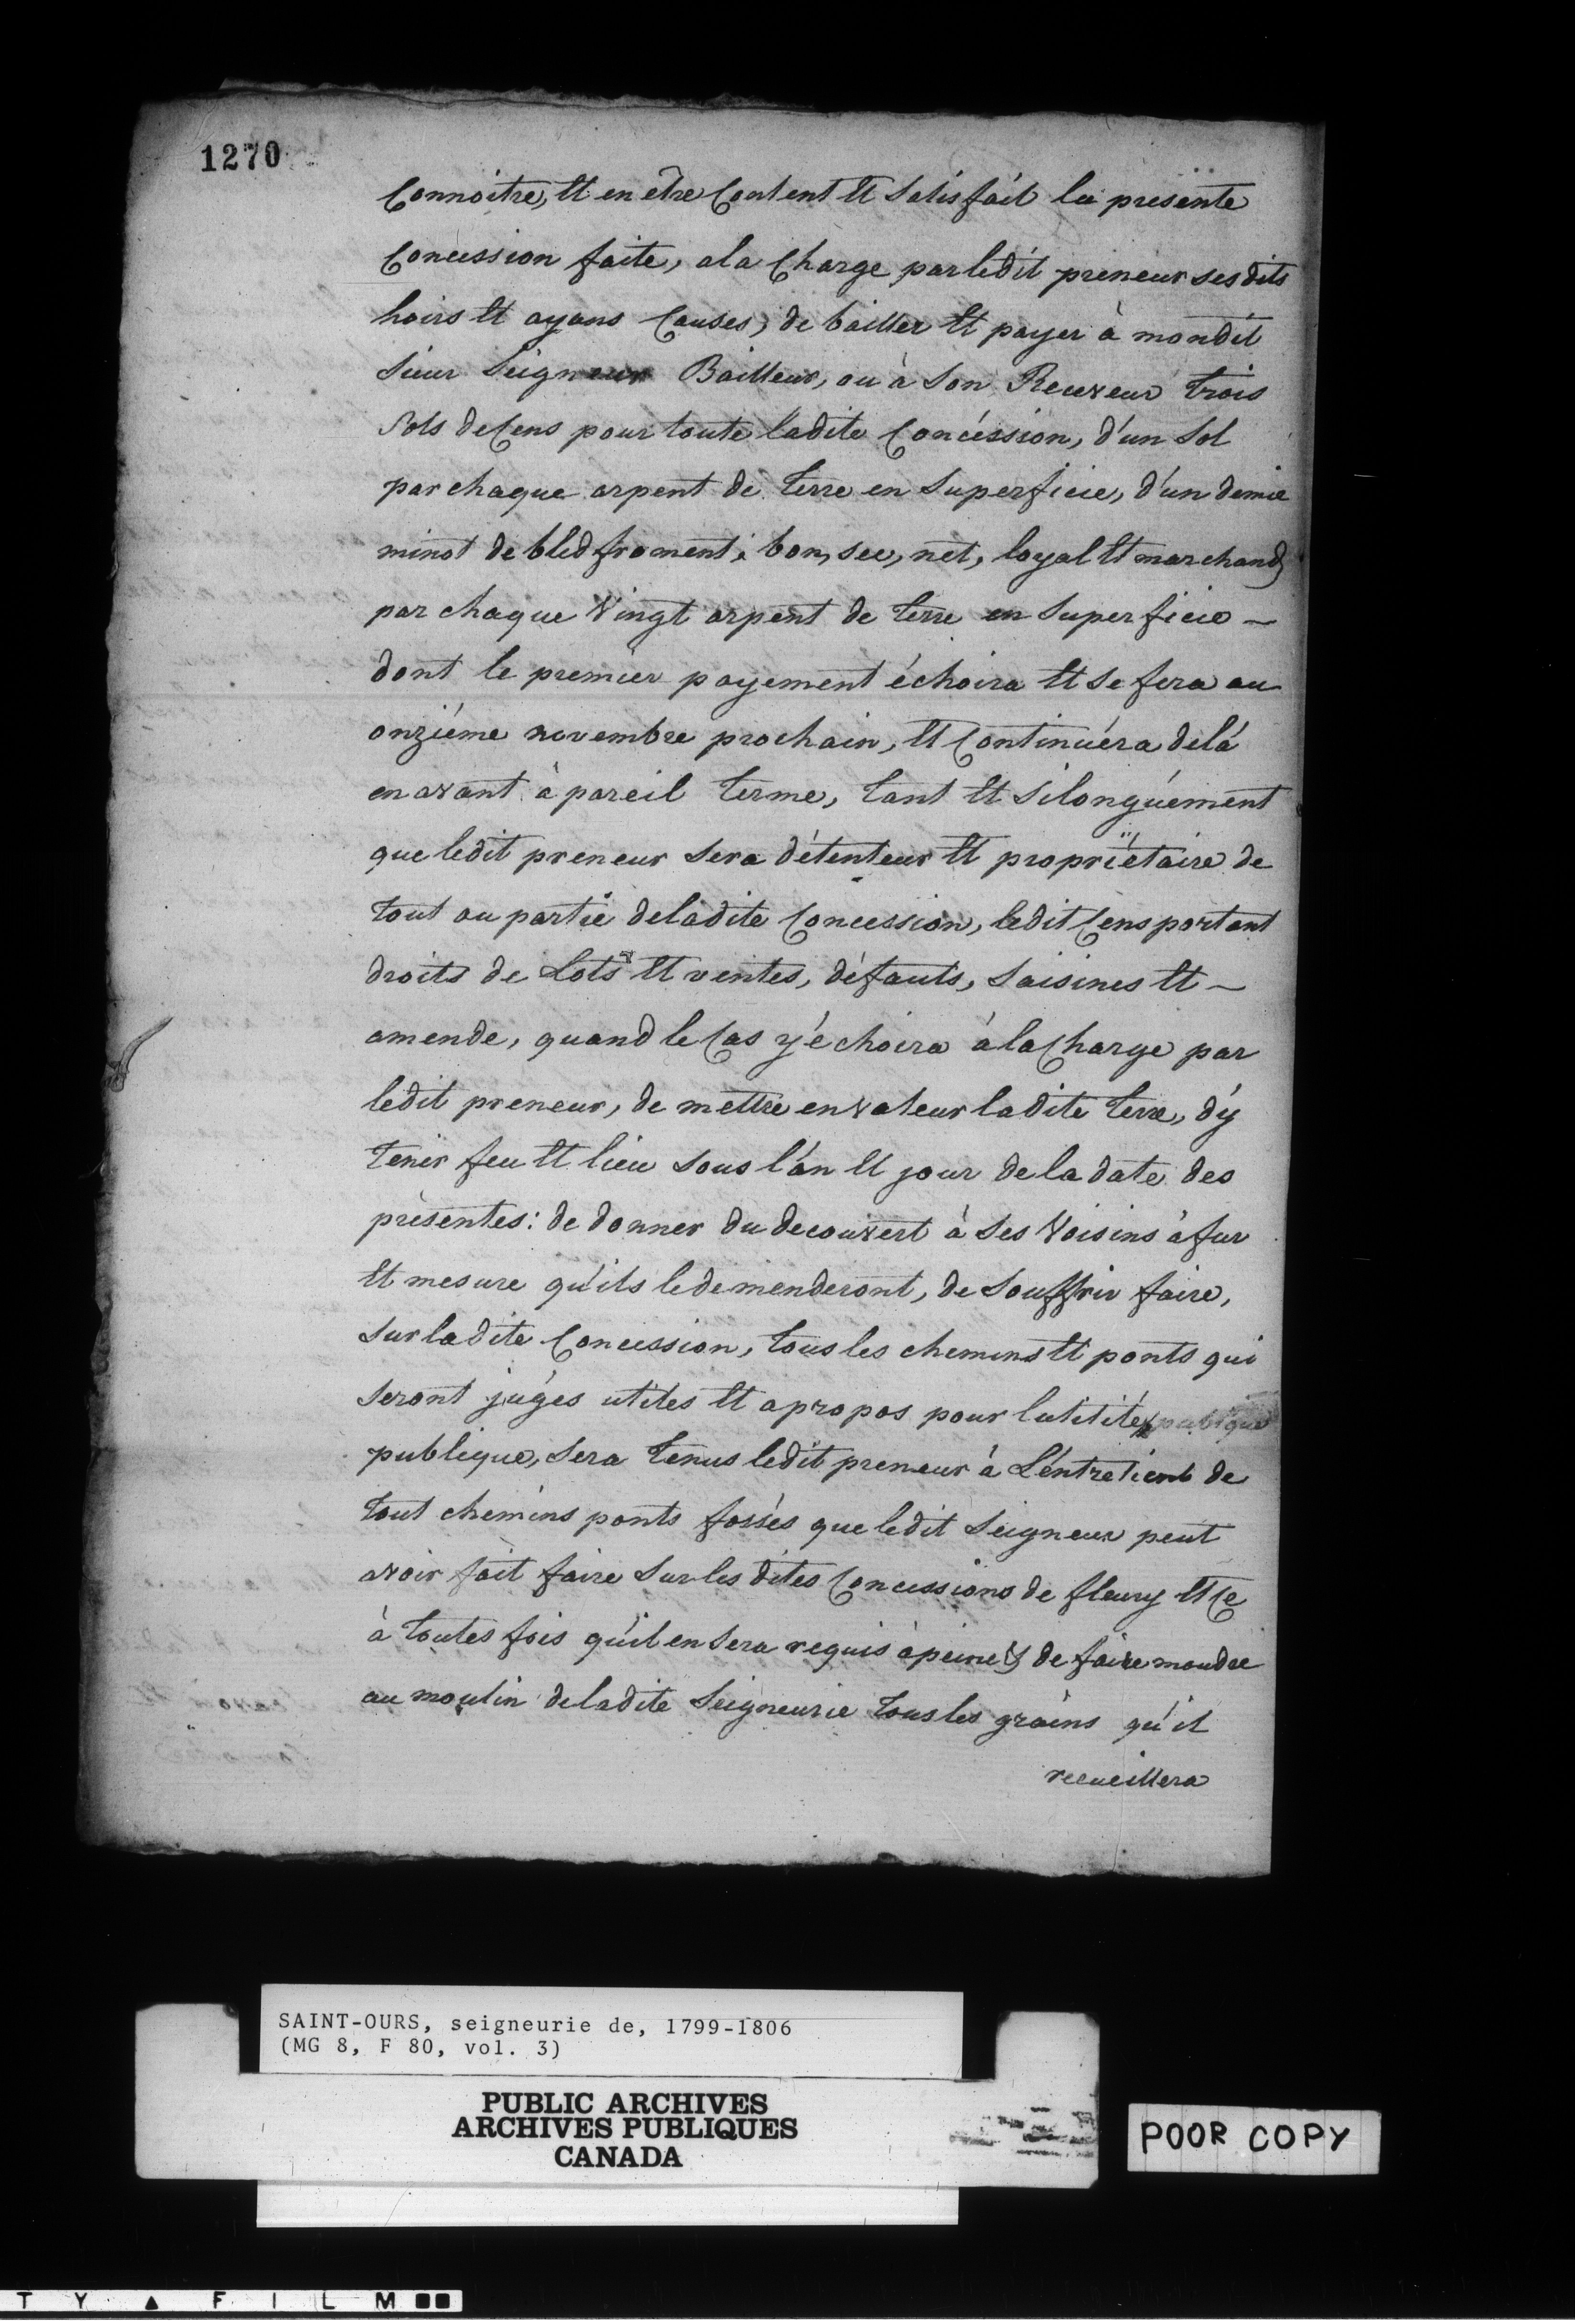 1270
Connoitre, Et en etre Content Et Satisfait la presente
Concession faite, ala Charge par ledit preneur ses dits
hoirs Et ayans Causes, de bailler Et payer à mondit
Sieur Seigneur Bailleur, ou à Son Receveur trois
Sols de Cens pour toute ladite Concéssion, d'un Sol
par chaque arpent de terre en Superficie, d'un demie
minot de bled froment, bon, sec, net, loyal Et marchand
par chaque Vingt arpent de terre en Superficie -
dont le premier payement échoira Et se fera au
onziéme novembre prochain, Et Continuéra delá
en avant à pareil terme, tant Et Silonguément
que ledit preneur Sera détenteur Et propriëtaire de
tout ou partie deladite Concession, ledit Cens portant
droits de Lots Et ventes, défauts, Saisines Et -
amende, quand le Cas y'échoira à la Charge par
ledit preneur, de mettre en valeur ladite terre, d'y
tenir feu Et lieu Sous l'an Et jour de la date des
présentes: de donner du decouvert à Ses Voisins à fur
Et mesure qu'ils le demenderont, de Souffrir faire,
Sur ladite Concession, tous les chemins Et ponts qui
Seront jugés utiles Et apropos pour lutitité publique
publique, Sera tenus ledit preneur à L'éntretient de
tout chemins ponts fossés que ledit Seigneur peut
avoir fait faire Sur les dites Concessions de fleury Et Ce
à toutes fois qu'il en Sera requis à peine &, de faire moudre
au moulin deladite Seigneurie tous les grains qu'il
recueillera
SAINT-OURS, seigneurie de, 1799-1806
(MG 8, F 80, vol. 3)
PUBLIC ARCHIVES
ARCHIVES PUBLIQUES
CANADA
POOR COPY
T Y ▲ F I L M